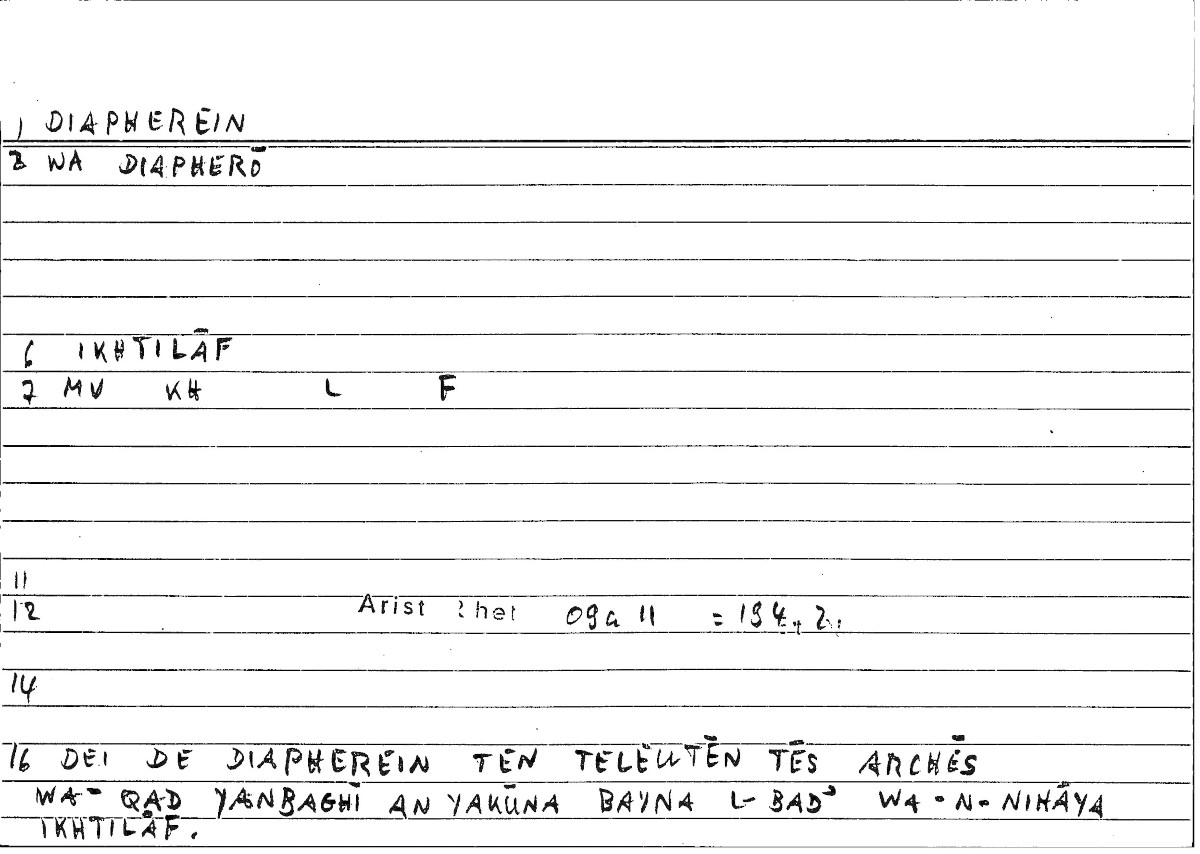 1 DIAPHEREIN
2 WA DIAPHERŌ
6 IKHTILĀF
7 MU KH L F
11
12 Arist Rhet 09a 11 = 194,
14
16 DEI DE DIAPHEREIN TEN TELEUTĒN TĒS ARCHĒS
WA- QAD YANBAGHĪ AN YAKŪNA BAYNA L- BADʾ WA-N-NIHĀYA
IKHTILĀF.